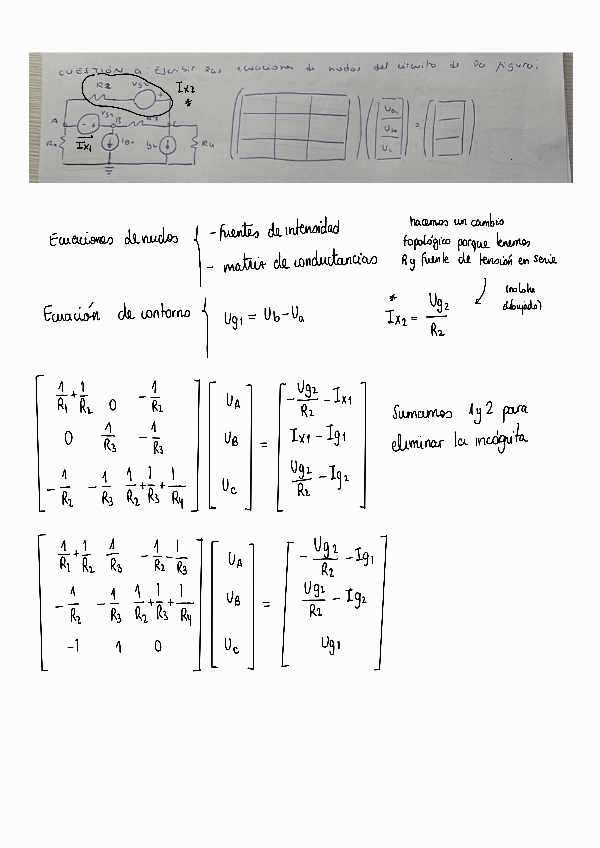 CUESTIÓN a: Escribir las ecuaciones de nudos del circuito de la figura:
R2 Vg2 + Ix2 *
A Vg1 B R3 C
- +
R1 Ix1 Ig1 g2 R4
UA
UB
UC
=
Ecuaciones de nudos { - fuentes de intensidad
- matriz de conductancias
hacemos un cambio
topológico porque tenemos
R y fuente de tensión en serie
(no lo he
dibujado)
Ecuación de contorno { Ug1 = Ub - Ua
* Ix2 = Ug2 / R2
1/R1 + 1/R2 0 -1/R2 UA -Ug2/R2 - Ix1
0 1/R3 -1/R3 UB = Ix1 - Ig1
-1/R2 -1/R3 1/R2 + 1/R3 + 1/R4 UC Ug2/R2 - Ig2
Sumamos 1 y 2 para
eliminar la incógnita
1/R1 + 1/R2 1/R3 -1/R2 - 1/R3 UA -Ug2/R2 - Ig1
-1/R2 -1/R3 1/R2 + 1/R3 + 1/R4 UB = Ug2/R2 - Ig2
-1 1 0 UC Ug1